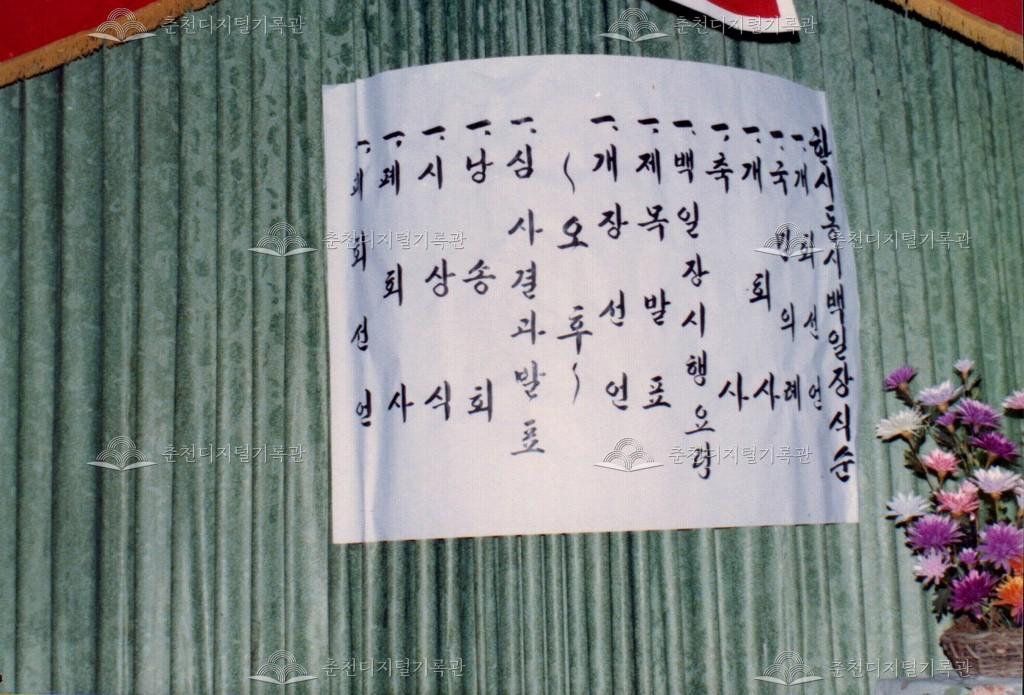 한시동시백일장식순
一. 개회선언
一. 국민의례
一. 개회사
一. 축사
一. 백일장시행요령
一. 제목발표
一. 개장선언
~오후~
一. 심사결과발표
一. 낭송회
一. 시상식
一. 폐회사
一. 폐회선언
춘천디지털기록관
춘천디지털기록관
춘천디지털기록관
춘천디지털기록관
춘천디지털기록관
춘천디지털기록관
춘천디지털기록관
춘천디지털기록관